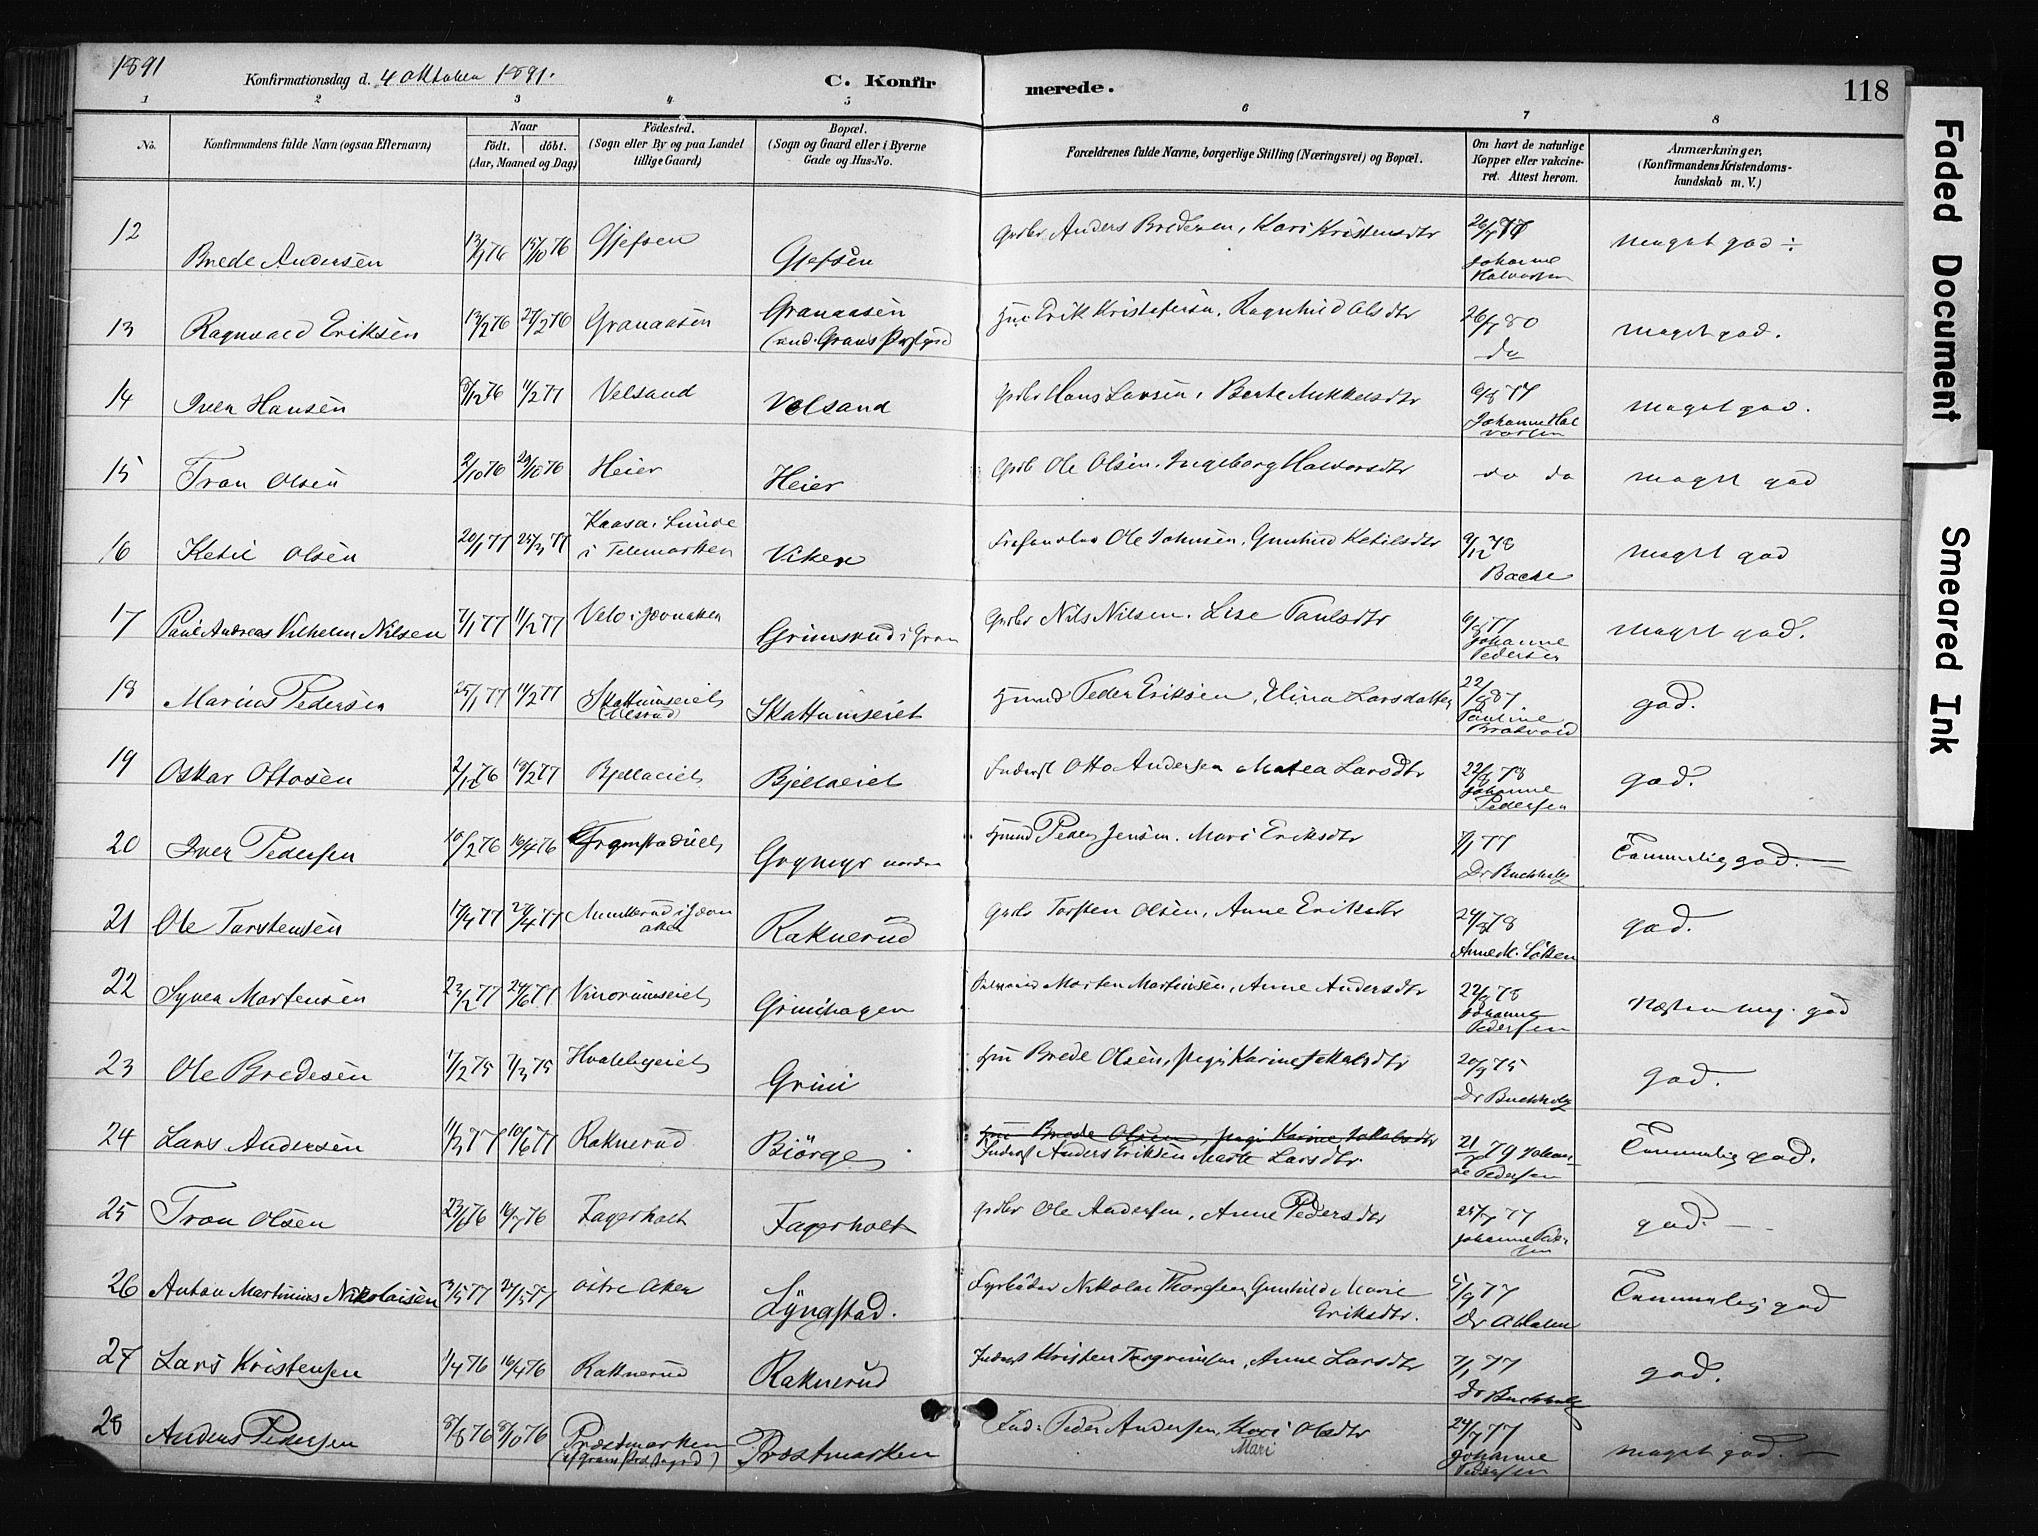 1891
Konfirmationsdag d. 4 Oktober 1891.
C. Konfir
merede.
118
1 2 3 4 5 6 7 8
No.
Konfirmandens fulde Navn (ogsaa Efternavn)
Naar
födt. döbt.
(Aar, Maaned og Dag)
Födested.
(Sogn eller By og paa Landet
tillige Gaard)
Bopæl.
(Sogn og Gaard eller i Byerne
Gade og Hus-No.
Forældrenes fulde Navne, borgerlige Stilling (Næringsvei) og Bopæl.
Om havt de naturlige
Kopper eller vakcine-
ret. Attest herom.
Anmærkninger,
(Konfirmandens Kristendoms-
kundskab m. V.)
12 Brede Andersen Gjefsen Gjefsen Anders Bredesen, Kari Kristensdtr Johanne Halvorsen meget god
13 Ragnvald Eriksen 13/2 76 27/2 76 Granaasen Granaasen Erik Kristofersen, Ragnhild Olsdtr 26/7 80 do meget god.
14 Iver Hansen 8/12 76 11/2 77 Velsand Velsand Hans Larsen, Berte Mikkelsdtr 9/8 77 Johanne Halvorsen meget god.
15 Tron Olsen 2/10 76 29/10 76 Heier Heier Ole Olsen, Ingeborg Halvorsdtr do do meget god
16 Ketil Olsen 20/1 77 25/3 77 Kaasa i Lunde i Telemarken Viken Ole Johnsen, Gunhild Ketilsdtr 9/12 78 Bache meget god
17 Paul Andreas Vilhelm Nilsen 7/1 77 11/2 77 Velo i Jevnaker Grimsrud i Gran Nils Nilsen, Lise Paulsdtr 9/8 77 Johanne Pedersen meget god.
18 Marius Pedersen 25/1 77 11/2 77 Skattumseiet Skattumseiet Peder Eriksen, Elina Larsdatter 22/8 87 Pauline Bratvold god.
19 Oskar Ottosen 2/12 76 18/2 77 Bjellaeiet Bjellaeiet Otto Andersen Matea Larsdtr 22/8 78 Johanne Pedersen god.
20 Iver Pedersen 10/2 76 16/4 76 Grymyr nordre Peder Jensen, Mari Eriksdtr 7/1 77 Dr Buchholz Temmelig god.
21 Ole Torstensen 17/4 77 27/4 77 Raknerud Torsten Olsen, Anne Eriksdtr 24/8 78 Anne M. Løken god.
22 Syver Martensen 23/2 77 24/6 77 Vinorumseiet Grinihagen Morten Martinsen, Anne Andersdtr 22/8 78 Johanne Pedersen Næsten meg. god
23 Ole Bredesen 1/2 75 7/3 75 Hvalebyeiet Grini Brede Olsen, Karine Jakobsdtr 20/9 75 Dr Buchholz god.
24 Lars Andersen 11/3 77 10/6 77 Raknerud Biörge Brede Olsen, Karine Jakobsdtr
Anders Eriksen Marte Larsdtr. 21/7 79 Johanne Pedersen Temmelig god.
25 Tron Olsen 23/6 76 16/7 76 Fagerholt Fagerholt Ole Andersen, Anne Pedersdtr 25/7 77 Johanne Pedersen god.
26 Anton Martinius Nikolaisen 3/5 77 27/5 77 östre Aker Lyngstad. Fyrbøder Nikolai Thorsen, Gunhild Marie Eriksdtr. 5/9 77 Temmelig god
27 Lars Kristensen 1/4 76 16/4 76 Raknerud Raknerud Kristen Torgrimsen, Anne Larsdtr 7/1 77 Dr Buchholz god.
28 Anders Pedersen 8/8 76 8/10 76 Præstmarken Præstmarken Peder Andersen, Kari Olsdtr Mari 24/7 77 Johanne Pedersen meget god.
Faded Document
Smeared Ink